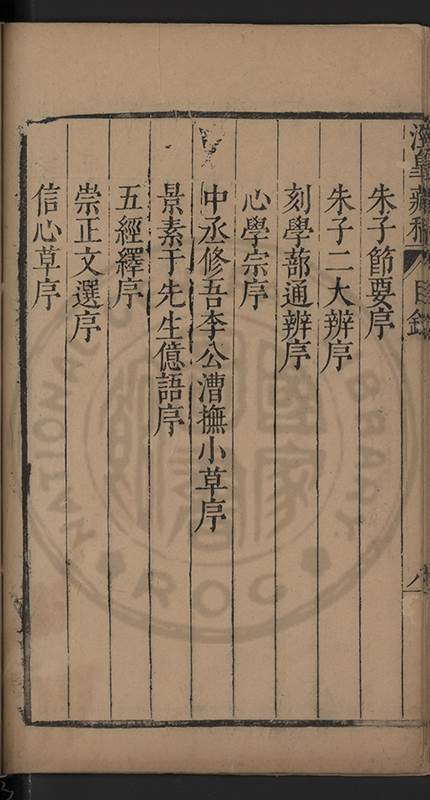 涇臯藏稿 目錄
朱子節要序
朱子二大辨序
刻學蔀通辨序
心學宗序
中丞修吾李公漕撫小草序
景素于先生億語序
五經繹序
崇正文選序
信心草序
NATIONAL
LIBRARY
ROC
國家